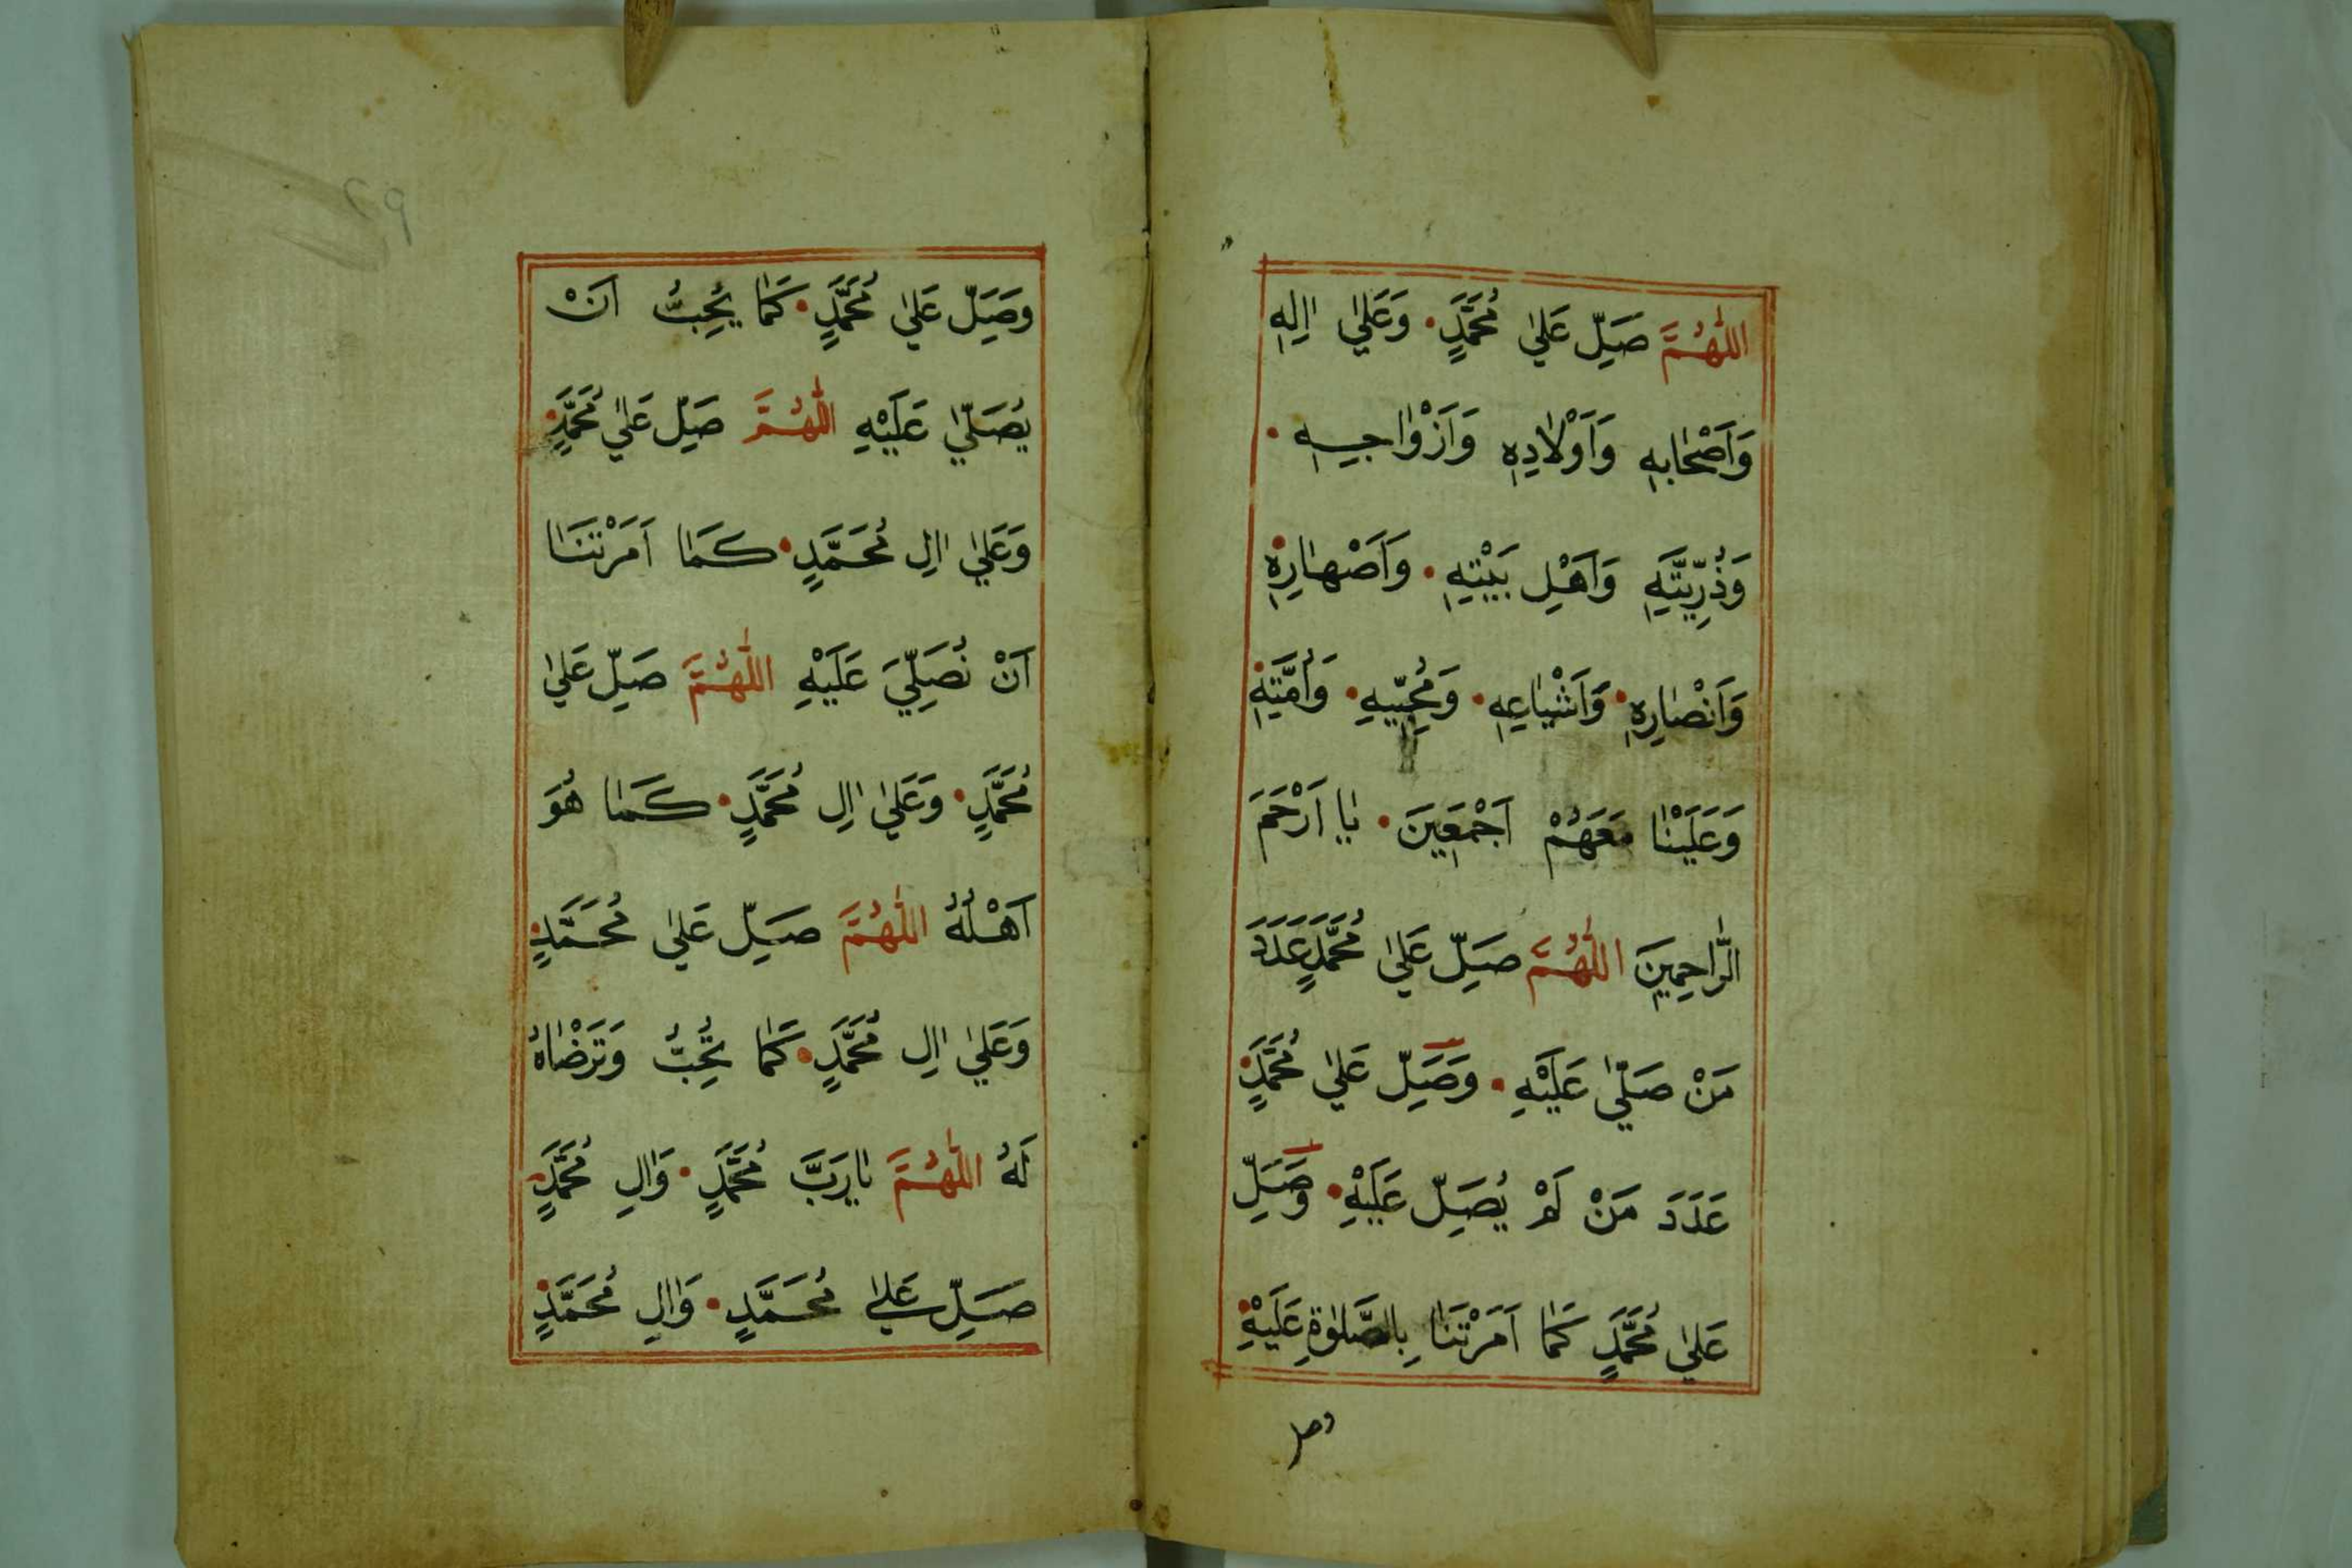 اَللّٰهُمَّ صَلِّ عَلٰي مُحَمَّدٍ • وَعَلٰي اٰلِهِ
وَاَصْحَابِهِ وَاَوْلَادِهِ وَاَزْوَاجِهِ •
وَذُرِّيَّتِهِ وَاَهْلِ بَيْتِهِ • وَاَصْهَارِهِ •
وَاَنْصَارِهِ • وَاَشْيَاعِهِ • وَمُحِبِّيهِ • وَاُمَّتِهِ •
وَعَلَيْنَا مَعَهُمْ اَجْمَعِينَ • يَا اَرْحَمَ
الرَّاحِمِينَ اَللّٰهُمَّ صَلِّ عَلٰي مُحَمَّدٍ عَدَدَ
مَنْ صَلّٰي عَلَيْهِ • وَصَلِّ عَلٰي مُحَمَّدٍ •
عَدَدَ مَنْ لَمْ يُصَلِّ عَلَيْهِ • وَصَلِّ
عَلٰي مُحَمَّدٍ كَمَا اَمَرْتَنَا بِالصَّلٰوةِ عَلَيْهِ •
وصل
٢٩
وَصَلِّ عَلٰي مُحَمَّدٍ • كَمَا يُحِبُّ اَنْ
يُصَلّٰي عَلَيْهِ اَللّٰهُمَّ صَلِّ عَلٰي مُحَمَّدٍ •
وَعَلٰي اٰلِ مُحَمَّدٍ • كَمَا اَمَرْتَنَا
اَنْ نُصَلِّيَ عَلَيْهِ اَللّٰهُمَّ صَلِّ عَلٰي
مُحَمَّدٍ • وَعَلٰي اٰلِ مُحَمَّدٍ • كَمَا هُوَ
اَهْلُهُ اَللّٰهُمَّ صَلِّ عَلٰي مُحَمَّدٍ •
وَعَلٰي اٰلِ مُحَمَّدٍ • كَمَا تُحِبُّ وَتَرْضَاهُ
لَهُ اَللّٰهُمَّ يَا رَبَّ مُحَمَّدٍ • وَاٰلِ مُحَمَّدٍ •
صَلِّ عَلٰي مُحَمَّدٍ • وَاٰلِ مُحَمَّدٍ •